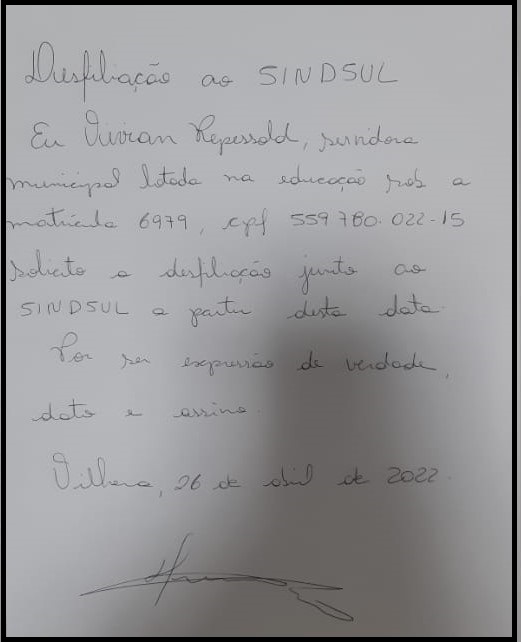 Desfiliação ao SINDSUL
Eu Vivian Repessold, servidora
municipal lotada na educação sob a
matrícula 6979, cpf 559 780.022-15
solicito a desfiliação junto ao
SINDSUL a partir desta data.
Por ser expressão de verdade,
dato e assino.
Vilhena, 26 de abril de 2022.